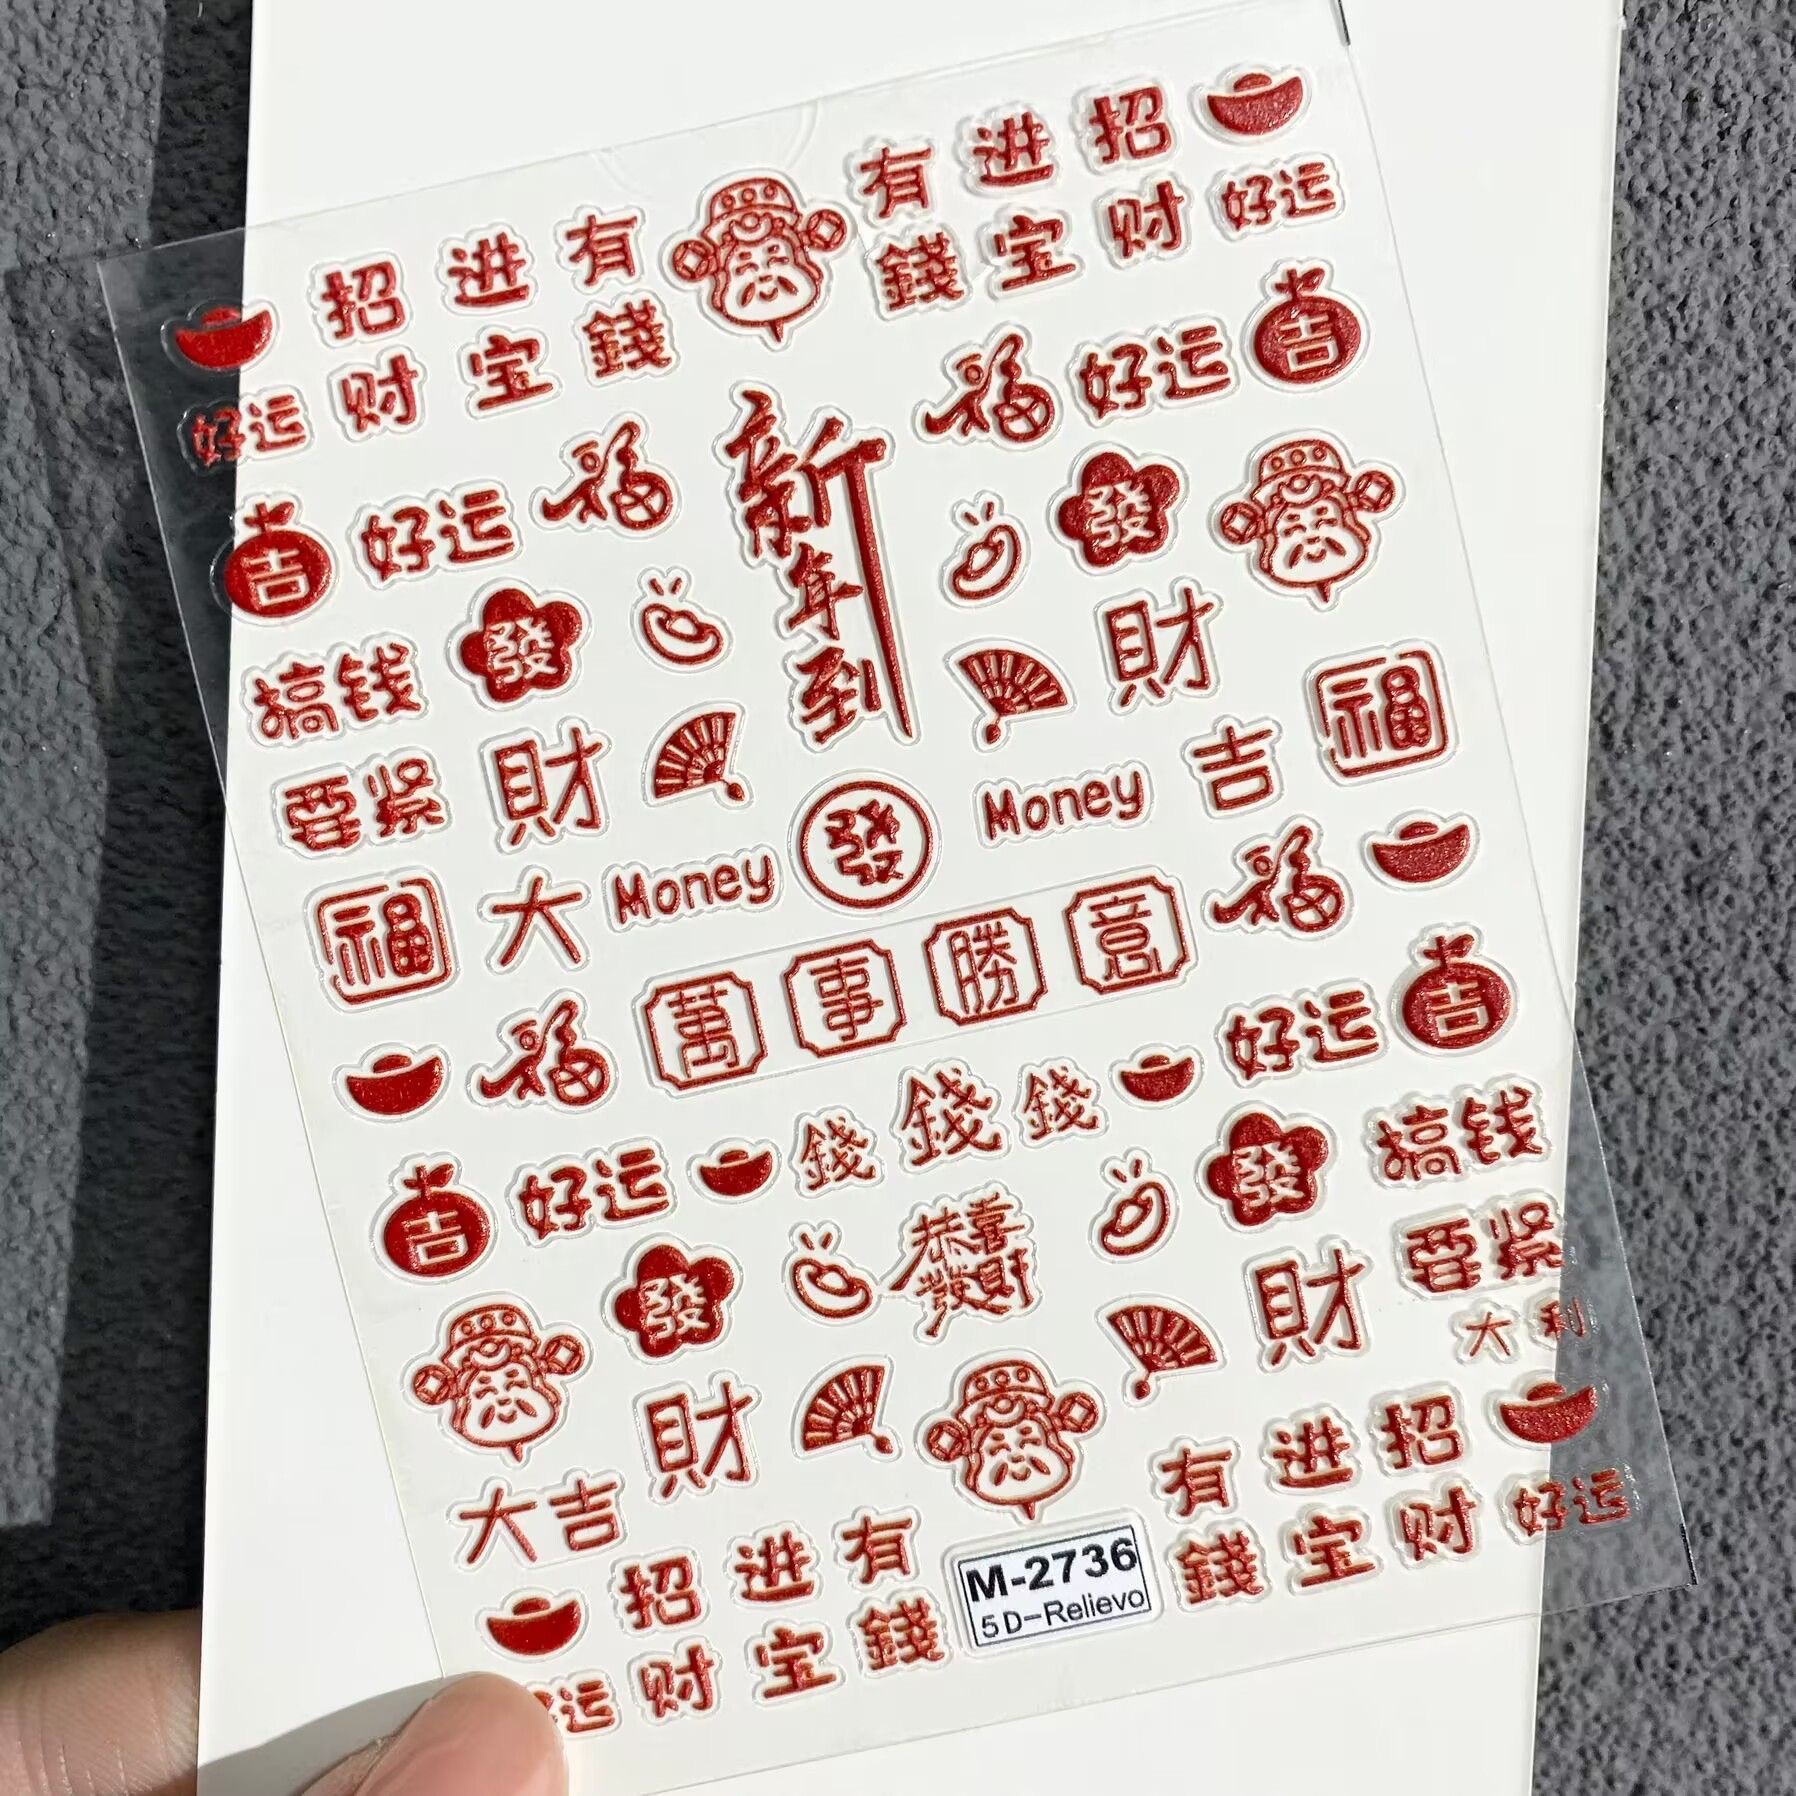 有 进 招
錢 宝 财 好运
招 进 有
财 宝 錢
好运
福 好运 吉
吉 好运 福
新年到
發
發
财
搞钱
要紧
財
財
福
吉
Money
Money
發
福
大
福
萬 事 勝 意
福
好运 吉
錢 錢 錢
吉 好运
發
搞钱
要紧
恭喜
發財
發
財
大 利
財
大吉
有 进 招
錢 宝 财 好运
招 进 有
财 宝 錢
运
M-2736
5D-Relievo